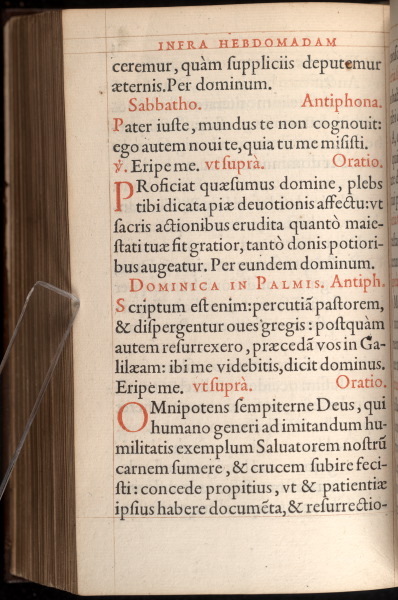 INFRA HEBDOMADAM
ceremur, quàm ſuppliciis deputemur
æternis. Per dominum.
Sabbatho. Antiphona.
Pater iuſte, mundus te non cognouit:
ego autem noui te, quia tu me miſiſti.
℣. Eripe me. vt ſuprà. Oratio.
PRoficiat quæſumus domine, plebs
tibi dicata piæ deuotionis affectu: vt
ſacris actionibus erudita quantò maie-
ſtati tuæ fit gratior, tantò donis potiori-
bus augeatur. Per eundem dominum.
DOMINICA IN PALMIS. Antiph.
Scriptum eſt enim: percutiā paſtorem,
& diſpergentur oues gregis: poſtquàm
autem reſurrexero, præcedā vos in Ga-
lilæam: ibi me videbitis, dicit dominus.
Eripe me. vt ſuprà. Oratio.
OMnipotens ſempiterne Deus, qui
humano generi ad imitandum hu-
militatis exemplum Saluatorem noſtrū
carnem ſumere, & crucem ſubire feci-
ſti: concede propitius, vt & patientiæ
ipſius habere documēta, & reſurrectio-